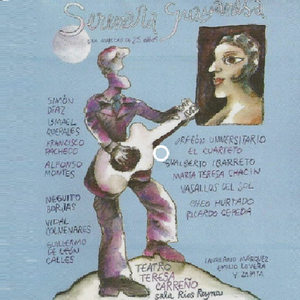 SIMÓN
DÍAZ
ISMAEL
QUERALES
FRANCISCO
PACHECO
ALFONSO
MONTES
NEGUITO
BORJAS
VIDAL
COLMENARES
GUILLERMO
DE LEÓN
CALLES
ORFEÓN UNIVERSITARIO
EL CUARTETO
GUALBERTO IBARRETO
MARÍA TERESA CHACÍN
VASALLOS DEL SOL
CHEO HURTADO
RICARDO CEPEDA
LAUREANO MÁRQUEZ
EMILIO LOVERA
Y ZAPATA
TEATRO
TERESA
CARREÑO
Sala Ríos Reyna